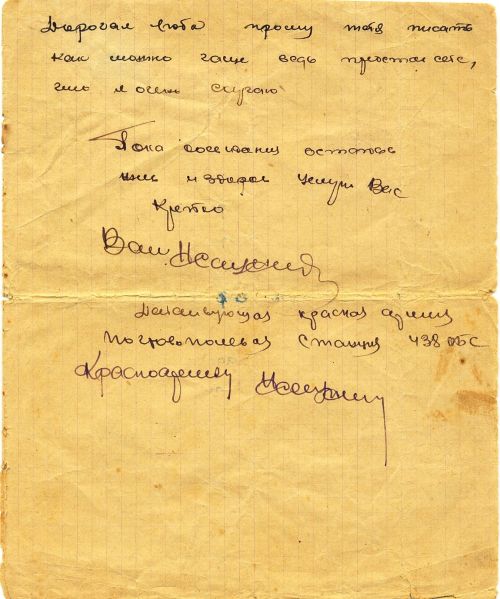 Дорогая Люба прошу тебя писать
как можно чаще ведь простой себе,
что я очень скучаю
Пока досвидания остаюсь
жив и здоров целую Вас
Крепко
Ваш
Действующая красная армия
почтово полевая станция 438 ОБС
Красноармейцу